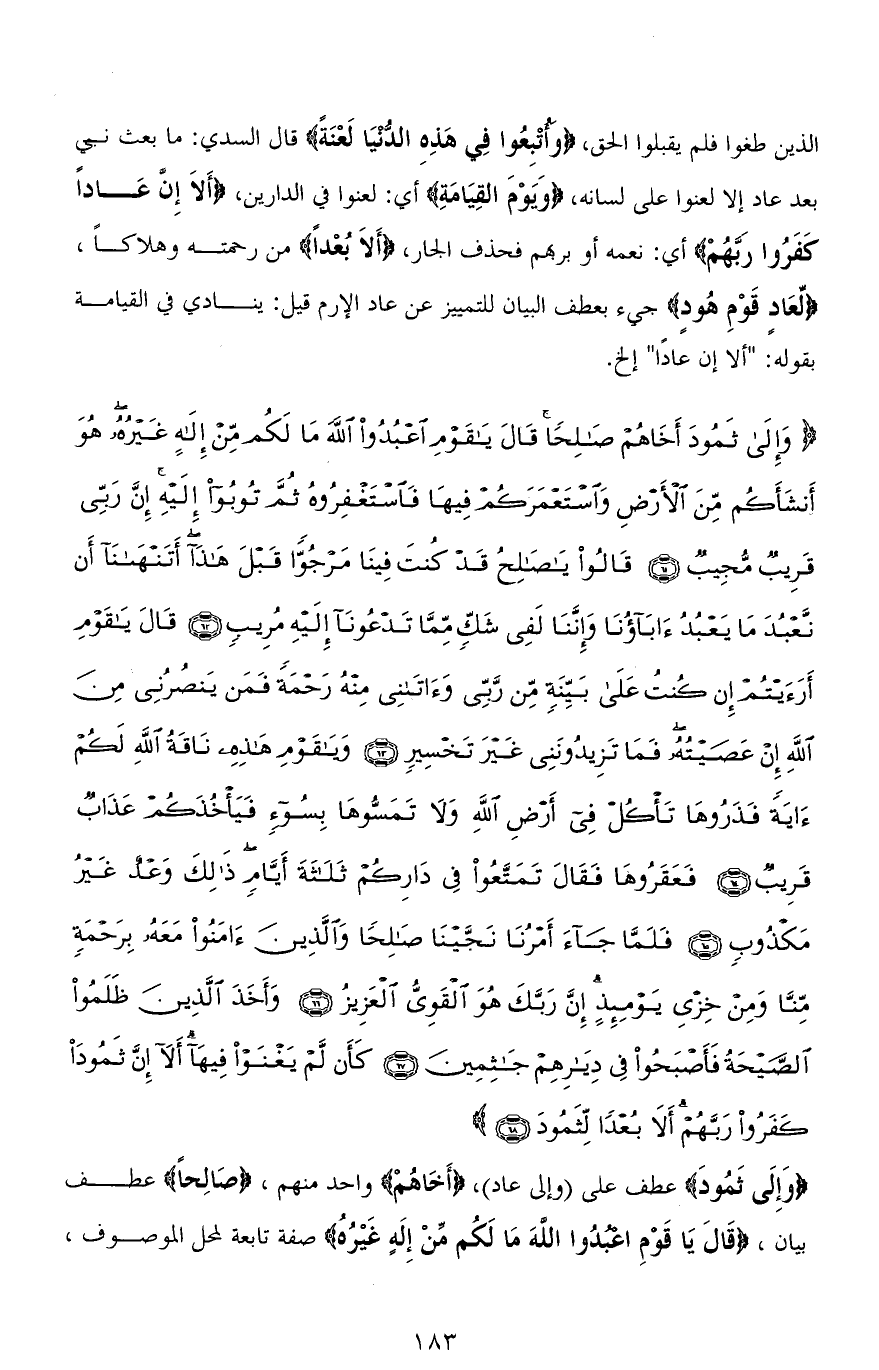 الذين طغوا فلم يقبلوا الحق، ﴿وَأُتْبِعُوا فِي هَذِهِ الدُّنْيَا لَعْنَةً﴾ قال السدي: ما بعث نبي
بعد عاد إلا لعنوا على لسانه، ﴿وَيَوْمَ القِيَامَةِ﴾ أي: لعنوا في الدارين، ﴿أَلاَ إِنَّ عَـــاداً
كَفَرُوا رَبَّهُمْ﴾ أي: نعمه أو بربهم فحذف الجار، ﴿أَلاَ بُعْداً﴾ من رحمتـــه وهلاكـــاً ،
﴿لِّعَادٍ قَوْمِ هُودٍ﴾ جيء بعطف البيان للتمييز عن عاد الإرم قيل: ينـــادي في القيامـــة
بقوله: "ألا إن عادًا" إلخ.
﴿ وَإِلَىٰ ثَمُودَ أَخَاهُمْ صَـٰلِحًا ۚ قَالَ يَـٰقَوْمِ ٱعْبُدُوا۟ ٱللَّهَ مَا لَكُم مِّنْ إِلَـٰهٍ غَيْرُهُۥ ۖ هُوَ
أَنشَأَكُم مِّنَ ٱلْأَرْضِ وَٱسْتَعْمَرَكُمْ فِيهَا فَٱسْتَغْفِرُوهُ ثُمَّ تُوبُوٓا۟ إِلَيْهِ ۚ إِنَّ رَبِّى
قَرِيبٌ مُّجِيبٌ ۝٦١ قَالُوا۟ يَـٰصَـٰلِحُ قَدْ كُنتَ فِينَا مَرْجُوًّا قَبْلَ هَـٰذَآ ۖ أَتَنْهَىٰنَآ أَن
نَّعْبُدَ مَا يَعْبُدُ ءَابَآؤُنَا وَإِنَّنَا لَفِى شَكٍّ مِّمَّا تَدْعُونَآ إِلَيْهِ مُرِيبٍ ۝٦٢ قَالَ يَـٰقَوْمِ
أَرَءَيْتُمْ إِن كُنتُ عَلَىٰ بَيِّنَةٍ مِّن رَّبِّى وَءَاتَىٰنِى مِنْهُ رَحْمَةً فَمَن يَنصُرُنِى مِنَ
ٱللَّهِ إِنْ عَصَيْتُهُۥ ۖ فَمَا تَزِيدُونَنِى غَيْرَ تَخْسِيرٍ ۝٦٣ وَيَـٰقَوْمِ هَـٰذِهِۦ نَاقَةُ ٱللَّهِ لَكُمْ
ءَايَةً فَذَرُوهَا تَأْكُلْ فِىٓ أَرْضِ ٱللَّهِ وَلَا تَمَسُّوهَا بِسُوٓءٍ فَيَأْخُذَكُمْ عَذَابٌ
قَرِيبٌ ۝٦٤ فَعَقَرُوهَا فَقَالَ تَمَتَّعُوا۟ فِى دَارِكُمْ ثَلَـٰثَةَ أَيَّامٍ ۖ ذَٰلِكَ وَعْدٌ غَيْرُ
مَكْذُوبٍ ۝٦٥ فَلَمَّا جَآءَ أَمْرُنَا نَجَّيْنَا صَـٰلِحًا وَٱلَّذِينَ ءَامَنُوا۟ مَعَهُۥ بِرَحْمَةٍ
مِّنَّا وَمِنْ خِزْىِ يَوْمِئِذٍ ۗ إِنَّ رَبَّكَ هُوَ ٱلْقَوِىُّ ٱلْعَزِيزُ ۝٦٦ وَأَخَذَ ٱلَّذِينَ ظَلَمُوا۟
ٱلصَّيْحَةُ فَأَصْبَحُوا۟ فِى دِيَـٰرِهِمْ جَـٰثِمِينَ ۝٦٧ كَأَن لَّمْ يَغْنَوْا۟ فِيهَآ ۗ أَلَآ إِنَّ ثَمُودَا۟
كَفَرُوا۟ رَبَّهُمْ ۗ أَلَا بُعْدًا لِّثَمُودَ ۝٦٨ ﴾
﴿وَإِلَى ثَمُودَ﴾ عطف على (وإلى عاد)، ﴿أَخَاهُمْ﴾ واحد منهم ، ﴿صَالِحاً﴾ عطـــف
بيان ، ﴿قَالَ يَا قَوْمِ اعْبُدُوا اللَّهَ مَا لَكُم مِّنْ إِلَهٍ غَيْرُهُ﴾ صفة تابعة لمحل الموصـــوف ،
١٨٣